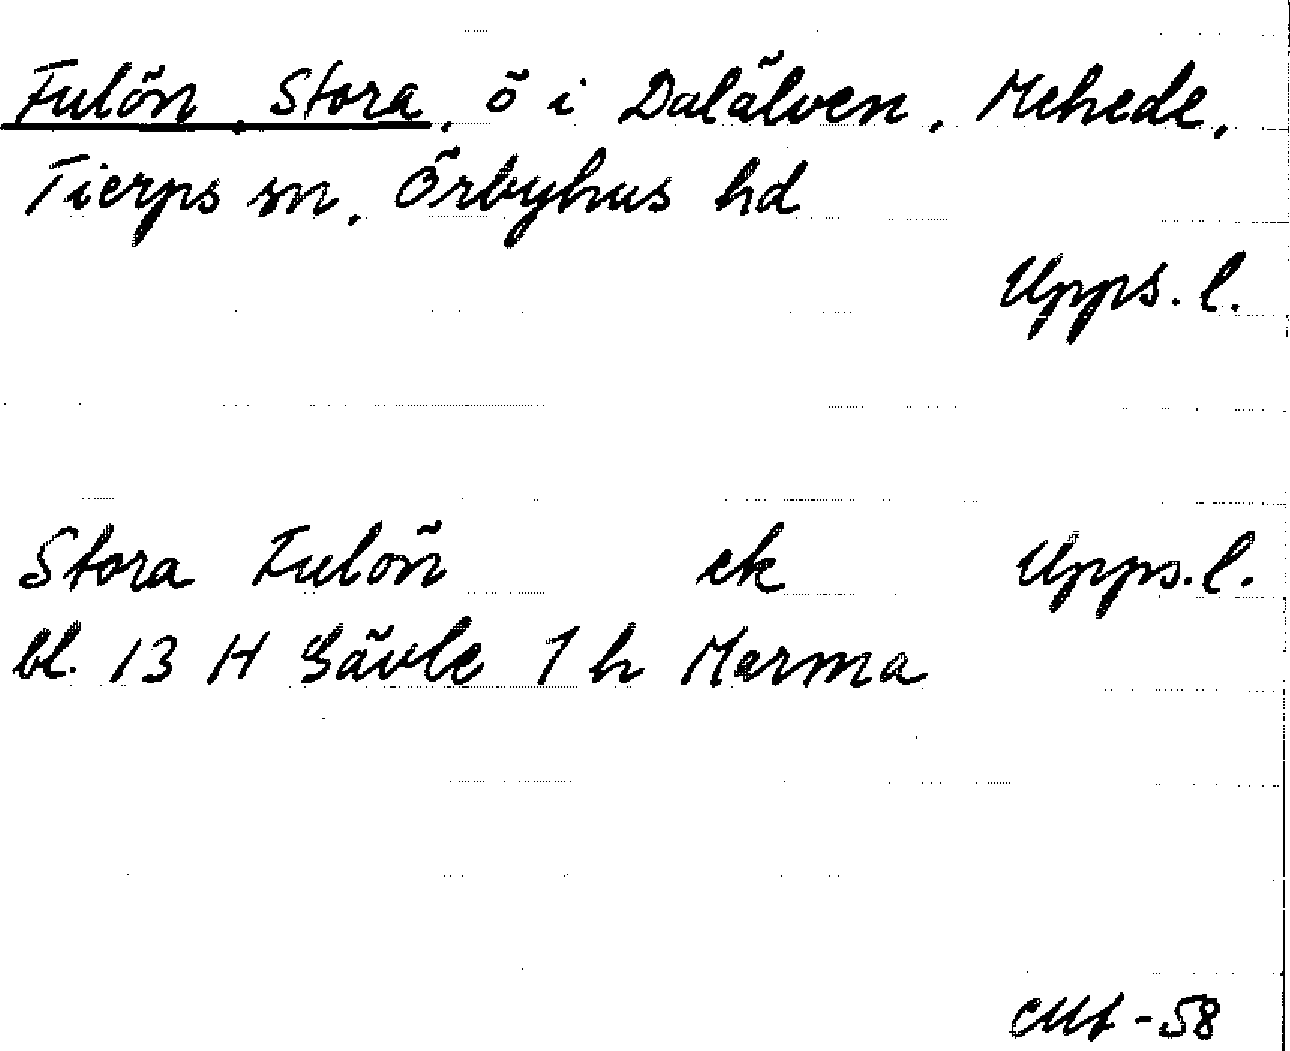 Fulön, Stora, ö i Dalälven, Mehede,
Tierps sn, Örbyhus hd
Upps. l.
Stora Fulön ek Upps. l.
bl. 13 H Gävle 1 h Marma
-58